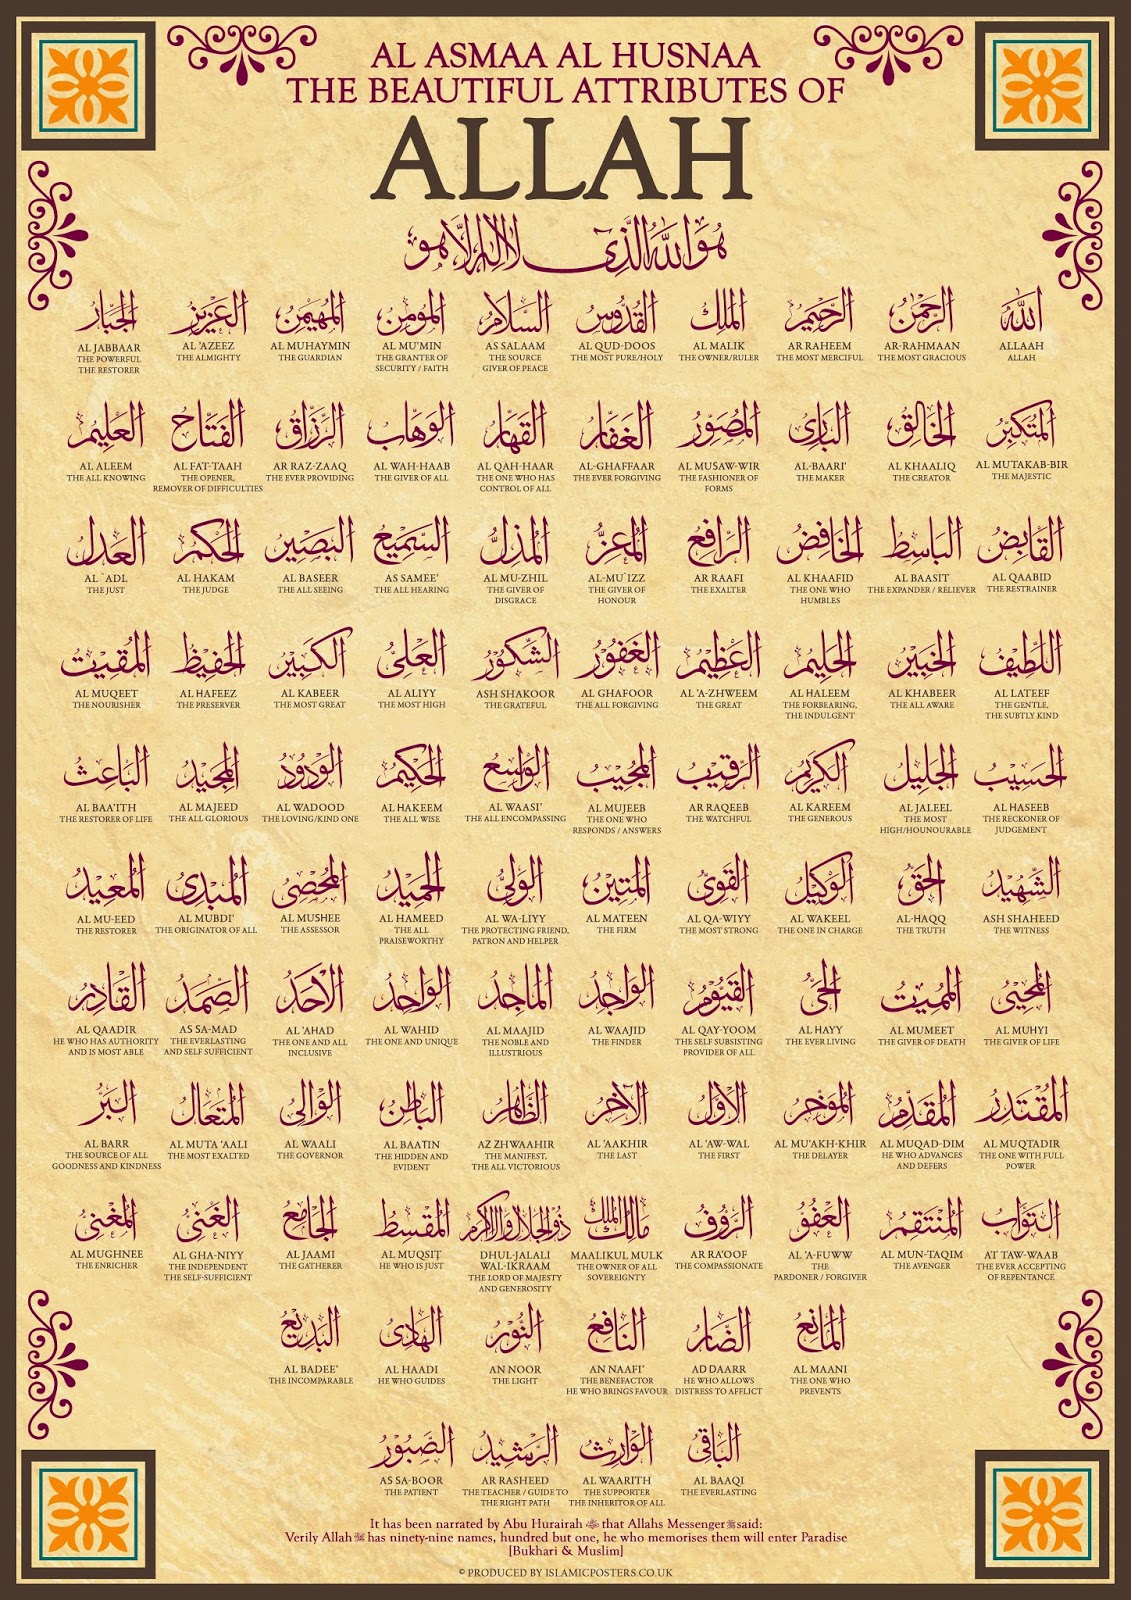 AL ASMAA AL HUSNAA
THE BEAUTIFUL ATTRIBUTES OF
ALLAH
هُوَ اللهُ الَّذِي لَا إِلٰهَ إِلَّا هُوَ
الله
ALLAAH
ALLAH
الرَّحْمٰنُ
AR-RAHMAAN
THE MOST GRACIOUS
الرَّحِيمُ
AR RAHEEM
THE MOST MERCIFUL
المَلِكُ
AL MALIK
THE OWNER/RULER
القُدُّوسُ
AL QUD-DOOS
THE MOST PURE/HOLY
السَّلَامُ
AS SALAAM
THE SOURCE
GIVER OF PEACE
المُؤْمِنُ
AL MU'MIN
THE GRANTER OF
SECURITY / FAITH
المُهَيْمِنُ
AL MUHAYMIN
THE GUARDIAN
العَزِيزُ
AL 'AZEEZ
THE ALMIGHTY
الجَبَّارُ
AL JABBAAR
THE POWERFUL
THE RESTORER
المُتَكَبِّرُ
AL MUTAKAB-BIR
THE MAJESTIC
الخَالِقُ
AL KHAALIQ
THE CREATOR
البَارِئُ
AL-BAARI'
THE MAKER
المُصَوِّرُ
AL MUSAW-WIR
THE FASHIONER OF
FORMS
الغَفَّارُ
AL-GHAFFAAR
THE EVER FORGIVING
القَهَّارُ
AL QAH-HAAR
THE ONE WHO HAS
CONTROL OF ALL
الوَهَّابُ
AL WAH-HAAB
THE GIVER OF ALL
الرَّزَّاقُ
AR RAZ-ZAAQ
THE EVER PROVIDING
الفَتَّاحُ
AL FAT-TAAH
THE OPENER,
REMOVER OF DIFFICULTIES
العَلِيمُ
AL ALEEM
THE ALL KNOWING
القَابِضُ
AL QAABID
THE RESTRAINER
البَاسِطُ
AL BAASIT
THE EXPANDER / RELIEVER
الخَافِضُ
AL KHAAFID
THE ONE WHO
HUMBLES
الرَّافِعُ
AR RAAFI
THE EXALTER
المُعِزُّ
AL-MU`IZZ
THE GIVER OF
HONOUR
المُذِلُّ
AL MU-ZHIL
THE GIVER OF
DISGRACE
السَّمِيعُ
AS SAMEE'
THE ALL HEARING
البَصِيرُ
AL BASEER
THE ALL SEEING
الحَكَمُ
AL HAKAM
THE JUDGE
العَدْلُ
AL `ADL
THE JUST
اللَّطِيفُ
AL LATEEF
THE GENTLE,
THE SUBTLY KIND
الخَبِيرُ
AL KHABEER
THE ALL AWARE
الحَلِيمُ
AL HALEEM
THE FORBEARING,
THE INDULGENT
العَظِيمُ
AL 'A-ZHWEEM
THE GREAT
الغَفُورُ
AL GHAFOOR
THE ALL FORGIVING
الشَّكُورُ
ASH SHAKOOR
THE GRATEFUL
العَلِيُّ
AL ALIYY
THE MOST HIGH
الكَبِيرُ
AL KABEER
THE MOST GREAT
الحَفِيظُ
AL HAFEEZ
THE PRESERVER
المُقِيتُ
AL MUQEET
THE NOURISHER
الحَسِيبُ
AL HASEEB
THE RECKONER OF
JUDGEMENT
الجَلِيلُ
AL JALEEL
THE MOST
HIGH/HOUNOURABLE
الكَرِيمُ
AL KAREEM
THE GENEROUS
الرَّقِيبُ
AR RAQEEB
THE WATCHFUL
المُجِيبُ
AL MUJEEB
THE ONE WHO
RESPONDS / ANSWERS
الوَاسِعُ
AL WAASI'
THE ALL ENCOMPASSING
الحَكِيمُ
AL HAKEEM
THE ALL WISE
الوَدُودُ
AL WADOOD
THE LOVING/KIND ONE
المَجِيدُ
AL MAJEED
THE ALL GLORIOUS
البَاعِثُ
AL BAA'ITH
THE RESTORER OF LIFE
الشَّهِيدُ
ASH SHAHEED
THE WITNESS
الحَقُّ
AL-HAQQ
THE TRUTH
الوَكِيلُ
AL WAKEEL
THE ONE IN CHARGE
القَوِيُّ
AL QA-WIYY
THE MOST STRONG
المَتِينُ
AL MATEEN
THE FIRM
الوَلِيُّ
AL WA-LIYY
THE PROTECTING FRIEND,
PATRON AND HELPER
الحَمِيدُ
AL HAMEED
THE ALL
PRAISEWORTHY
المُحْصِي
AL MUSHEE
THE ASSESSOR
المُبْدِئُ
AL MUBDI'
THE ORIGINATOR OF ALL
المُعِيدُ
AL MU-EED
THE RESTORER
المُحْيِي
AL MUHYI
THE GIVER OF LIFE
المُمِيتُ
AL MUMEET
THE GIVER OF DEATH
الحَيُّ
AL HAYY
THE EVER LIVING
القَيُّومُ
AL QAY-YOOM
THE SELF SUBSISTING
PROVIDER OF ALL
الوَاجِدُ
AL WAAJID
THE FINDER
المَاجِدُ
AL MAAJID
THE NOBLE AND
ILLUSTRIOUS
الوَاحِدُ
AL WAHID
THE ONE AND UNIQUE
الأَحَدُ
AL 'AHAD
THE ONE AND ALL
INCLUSIVE
الصَّمَدُ
AS SA-MAD
THE EVERLASTING
AND SELF SUFFICIENT
القَادِرُ
AL QAADIR
HE WHO HAS AUTHORITY
AND IS MOST ABLE
المُقْتَدِرُ
AL MUQTADIR
THE ONE WITH FULL
POWER
المُقَدِّمُ
AL MUQAD-DIM
HE WHO ADVANCES
AND DEFERS
المُؤَخِّرُ
AL MU'AKH-KHIR
THE DELAYER
الأَوَّلُ
AL 'AW-WAL
THE FIRST
الآخِرُ
AL 'AAKHIR
THE LAST
الظَّاهِرُ
AZ ZHWAAHIR
THE MANIFEST,
THE ALL VICTORIOUS
البَاطِنُ
AL BAATIN
THE HIDDEN AND
EVIDENT
الوَالِي
AL WAALI
THE GOVERNOR
المُتَعَالُ
AL MUTA 'AALI
THE MOST EXALTED
البَرُّ
AL BARR
THE SOURCE OF ALL
GOODNESS AND KINDNESS
التَّوَّابُ
AT TAW-WAAB
THE EVER ACCEPTING
OF REPENTANCE
المُنْتَقِمُ
AL MUN-TAQIM
THE AVENGER
العَفُوُّ
AL 'A-FUWW
THE
PARDONER / FORGIVER
الرَّؤُوفُ
AR RA'OOF
THE COMPASSIONATE
مَالِكُ المُلْكِ
MAALIKUL MULK
THE OWNER OF ALL
SOVEREIGNTY
ذُو الجَلَالِ وَالإِكْرَامِ
DHUL-JALALI
WAL-IKRAAM
THE LORD OF MAJESTY
AND GENEROSITY
المُقْسِطُ
AL MUQSIT
HE WHO IS JUST
الجَامِعُ
AL JAAMI
THE GATHERER
الغَنِيُّ
AL GHA-NIYY
THE INDEPENDENT
THE SELF-SUFFICIENT
المُغْنِي
AL MUGHNEE
THE ENRICHER
المَانِعُ
AL MAANI
THE ONE WHO
PREVENTS
الضَّارُّ
AD DAARR
HE WHO ALLOWS
DISTRESS TO AFFLICT
النَّافِعُ
AN NAAFI'
THE BENEFACTOR
HE WHO BRINGS FAVOUR
النُّورُ
AN NOOR
THE LIGHT
الهَادِي
AL HAADI
HE WHO GUIDES
البَدِيعُ
AL BADEE'
THE INCOMPARABLE
البَاقِي
AL BAAQI
THE EVERLASTING
الوَارِثُ
AL WAARITH
THE SUPPORTER
THE INHERITOR OF ALL
الرَّشِيدُ
AR RASHEED
THE TEACHER / GUIDE TO
THE RIGHT PATH
الصَّبُورُ
AS SA-BOOR
THE PATIENT
It has been narrated by Abu Hurairah that Allahs Messenger ﷺ said:
Verily Allah ﷻ has ninety-nine names, hundred but one, he who memorises them will enter Paradise
[Bukhari & Muslim]
© PRODUCED BY ISLAMICPOSTERS.CO.UK